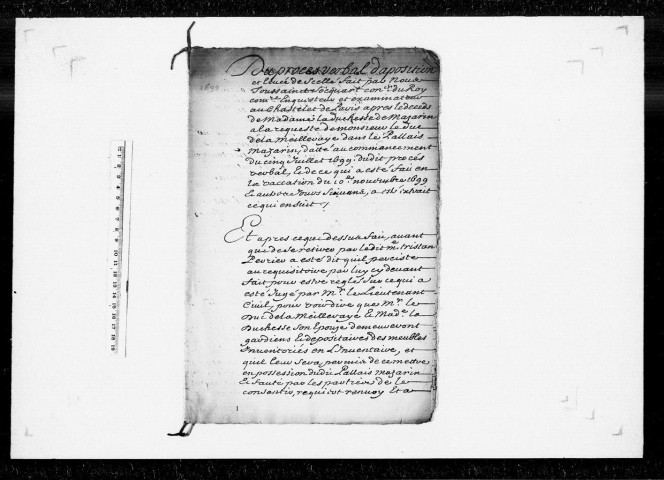 Du proces verbal d'aposition
et levée de Scellé fait par Nous
Toussainct Socquart con.er du Roy
com.re Enquesteur et examinateur
au Chastelet de Paris apres le deceds
de Madame la Duchesse de Mazarin
a la requeste de monsieur le Duc
de la Meilleraye dans le Pallais
Mazarin, datté au commencement
du cinq Juillet 1699. dudit procés
verbal, et de ce qui a esté fait en
la vaccation du 10.e novembre 1699
& autres Jours suivans, a esté extrait
ce qui ensuit /
Et apres ce que dessus fait, avant
que de se retirer par ledit m.e tristan
Levrier a esté dit quil persiste
au requisitoire par luy cy devant
fait pour estre reglé sur ce qui a
esté Jugé par M.r le Lieutenant
Civil, pour voir dire que M.r le
Duc de la Meilleraye & Mad.e la
Duchesse son Epouse demeureront
gardiens & depositaires des meubles
Inventoriés en l'Inventaire, et
quil leur sera permis de se mettre
en possession dudit Pallais mazarin
& faute par les parties de le
consentir, requiert renvoy Et a
1699